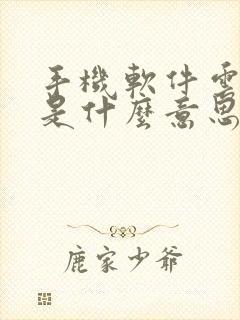 手機軟件
是什麼意思
鹿家少爺